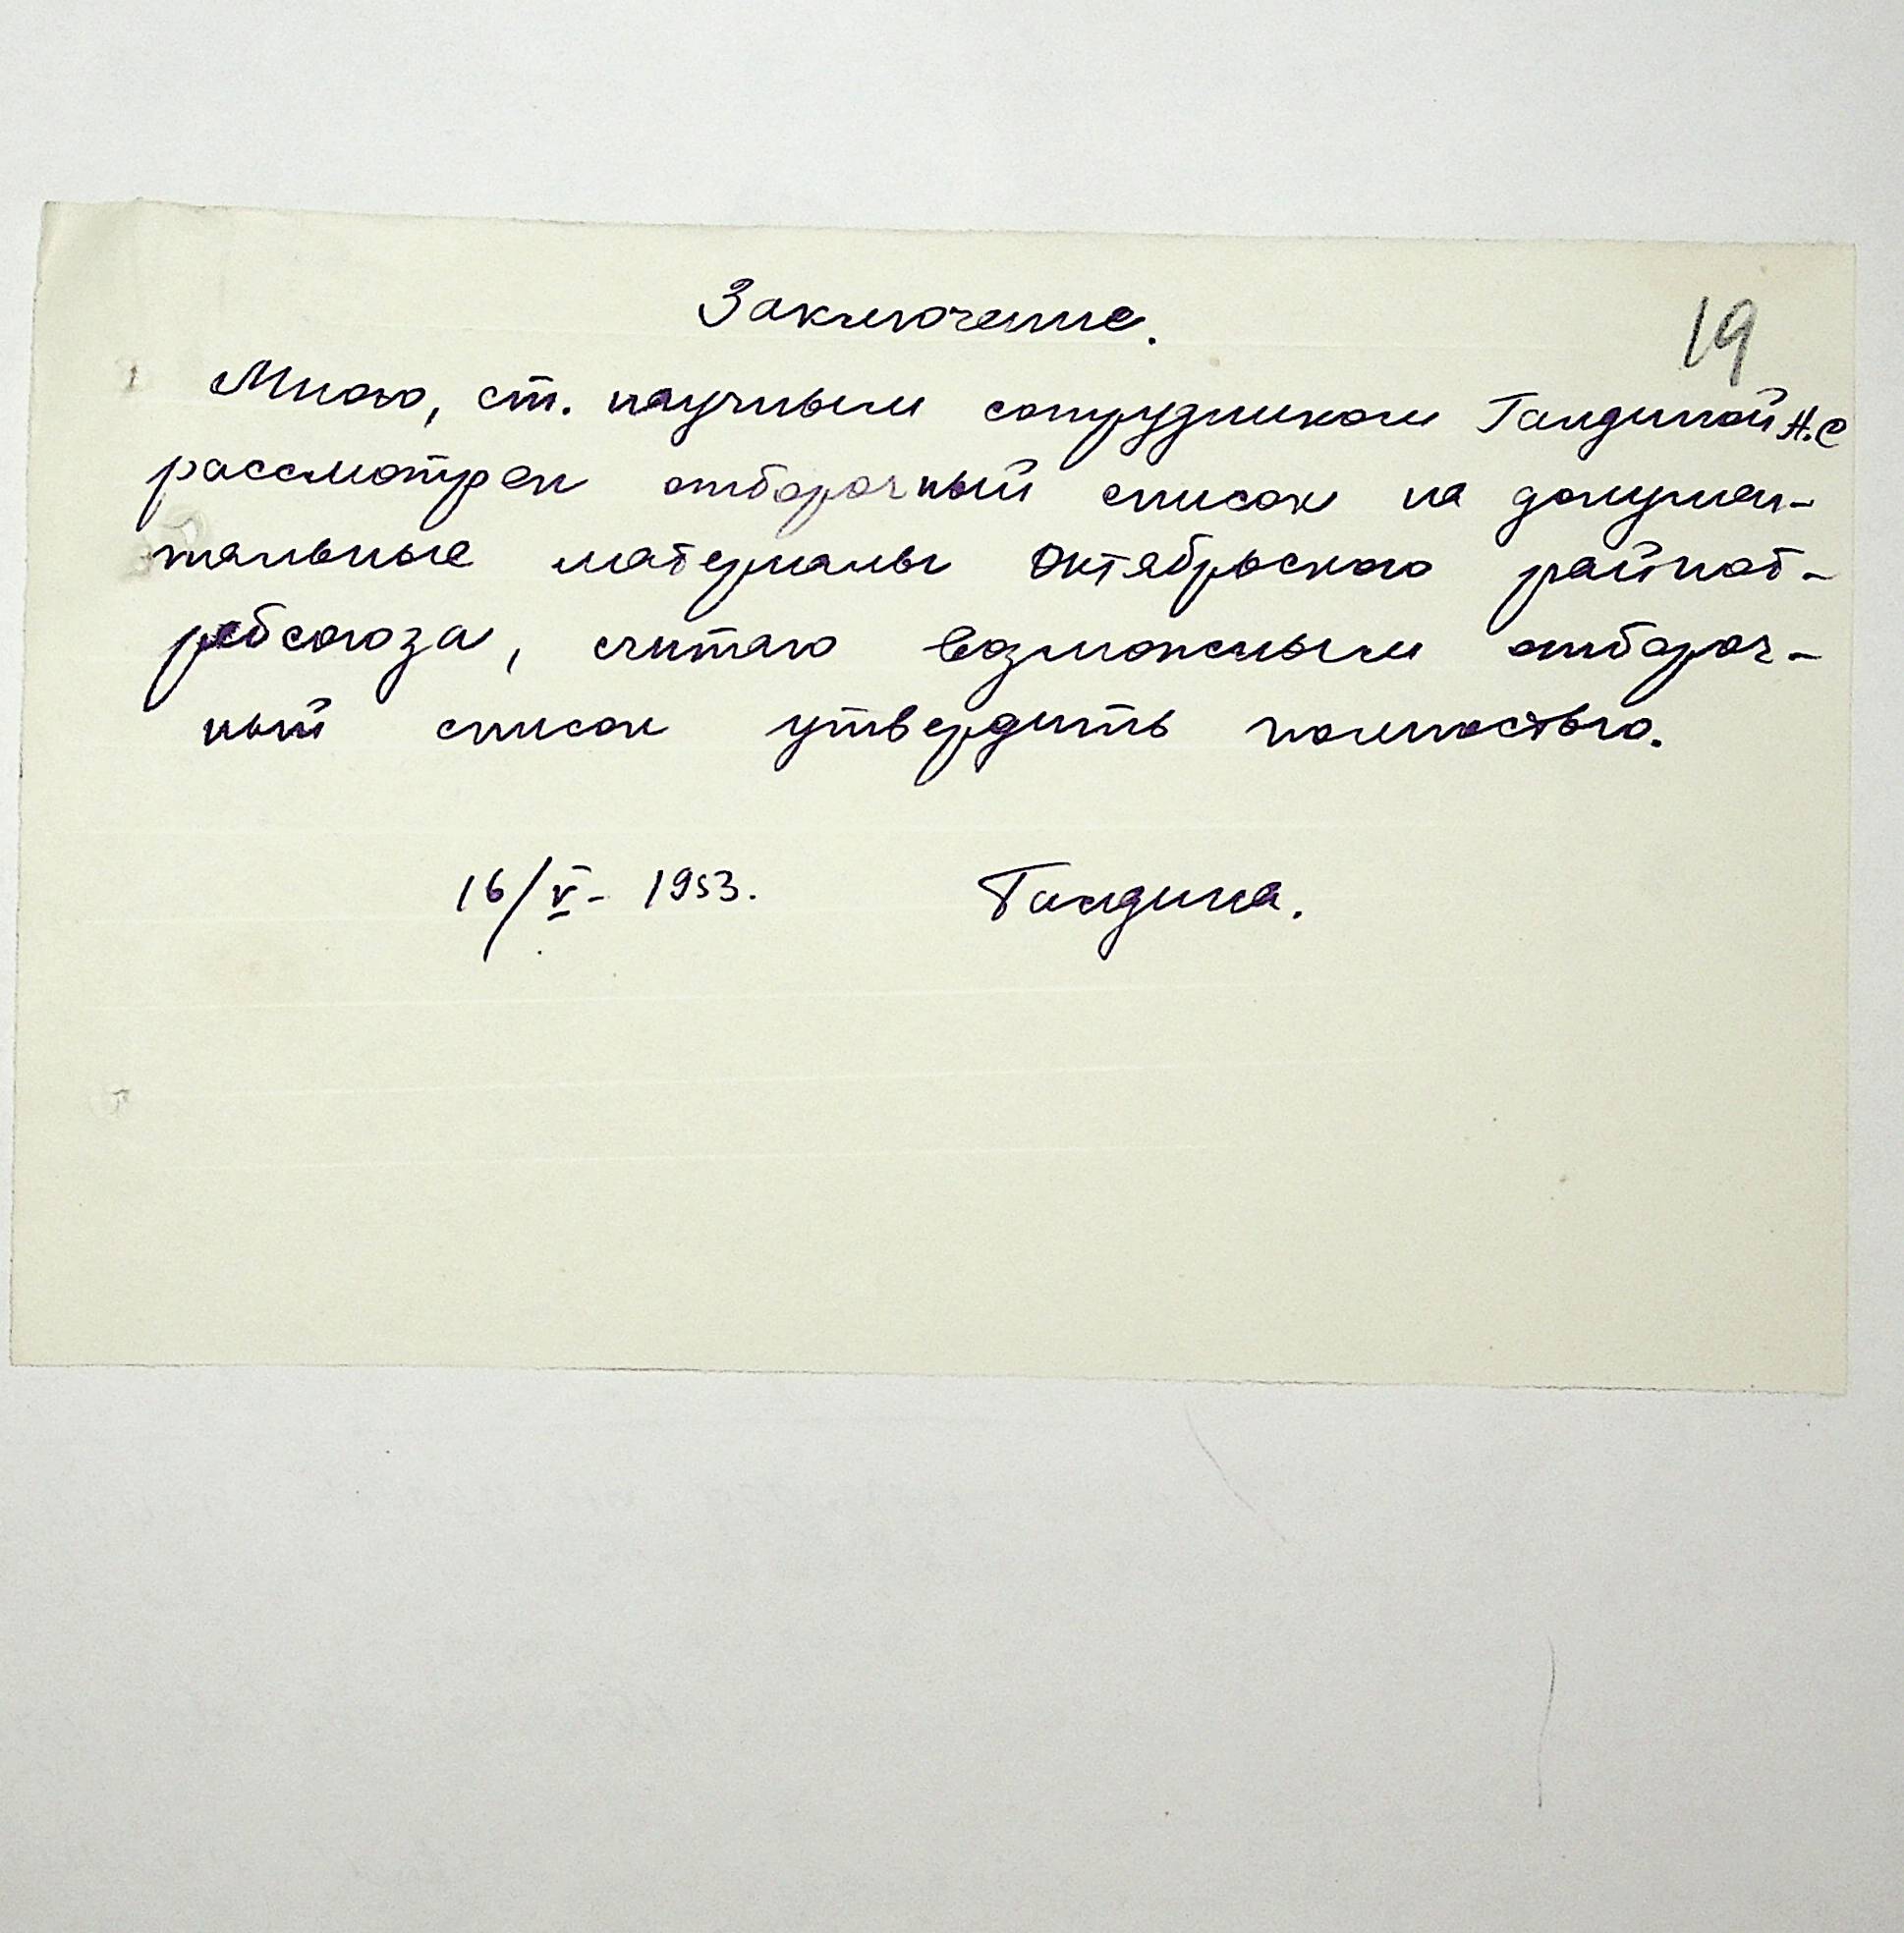 Заключение.
19
Мною, ст. научным сотрудником Галдиной Н.С
рассмотрен отборочный список на докумен-
тальные материалы Октябрьского райпот-
ребсоюза, считаю возможным отбороч-
ный список утвердить полностью.
16/V- 1953. Галдина.